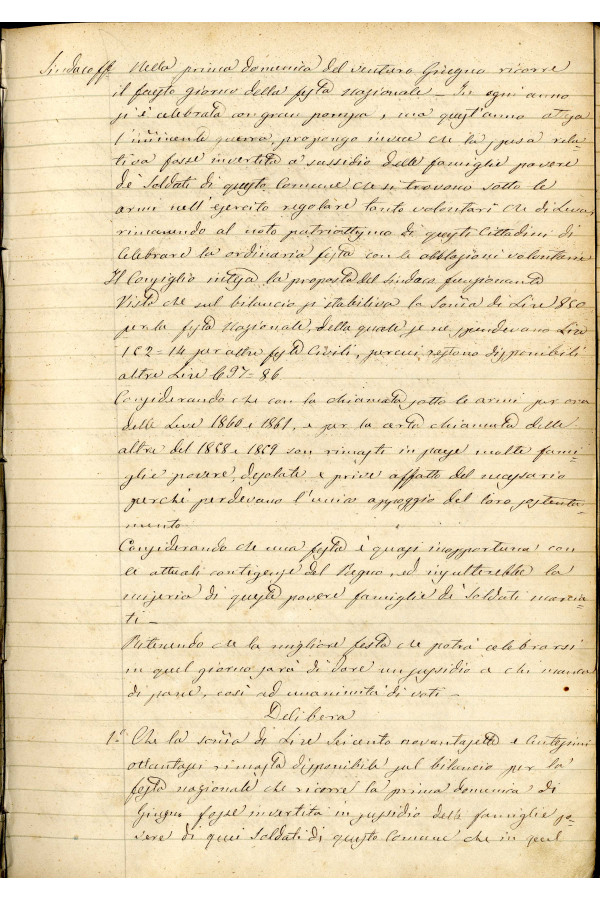 Sindaco ff. Nella prima domenica del venturo Giugno ricorre
il fausto giorno della festa Nazionale – In ogni anno
si è celebrata con gran pompa, ma quest'anno attesa
l'imminente guerra, propongo invece che la spesa rela-
tiva fosse invertita a sussidio delle famiglie povere
de' Soldati di questo Comune che si trovano sotto le
armi nell'esercito regolare tanto volontari che di Leva,
rimanendo al noto patriottismo di questi Cittadini di
celebrare la ordinaria festa con le obblazioni volontarie
Il Consiglio intesa la proposta del Sindaco funzionante
Visto che sul bilancio si stabiliva la soma di Lire 850
per la festa Nazionale, della quale se ne spendevano Lire
152=14 per altre feste Civili, percui restono disponibili
altre Lire 697=86
Considerando che con la chiamata sotto le armi per ora
delle Leve 1860 e 1861, e per la certa chiamata delle
altre del 1858 e 1859 son rimasti in paese molte fami-
glie povere, desolate e prive affatto del necessario
perché perdevano l'unico appoggio del loro sostenta-
mento
Considerando che una festa è quasi inopportuna con
le attuali contigenze del Regno, ed insulterebbe la
miseria di queste povere famiglie di Soldati marcia-
ti –
Ritenendo che la migliore festa che potrà celebrarsi
in quel giorno sarà di dare un sussidio a chi manca
di pane, così ad unanimità di voti –
Delibera
1° Che la soma di Lire Seicento novantasette e centesimi
ottantasei rimasta disponibile sul bilancio per la
festa nazionale che ricorre la prima domenica di
Giugno fosse invertita in sussidio delle famiglie po-
vere di quei Soldati di questo Comune che in quel